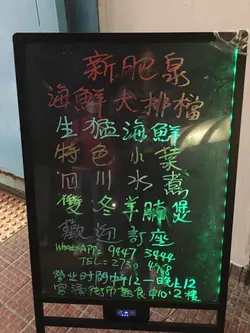 新肥泉
海鮮大排檔
生猛海鮮
特色小菜
四川水煮
雙冬羊腩煲
歡迎訂座
WhatsApp: 9447 3444
TEL: 2730
營業時間中午12-晚上12
官涌街市熟食中心2樓